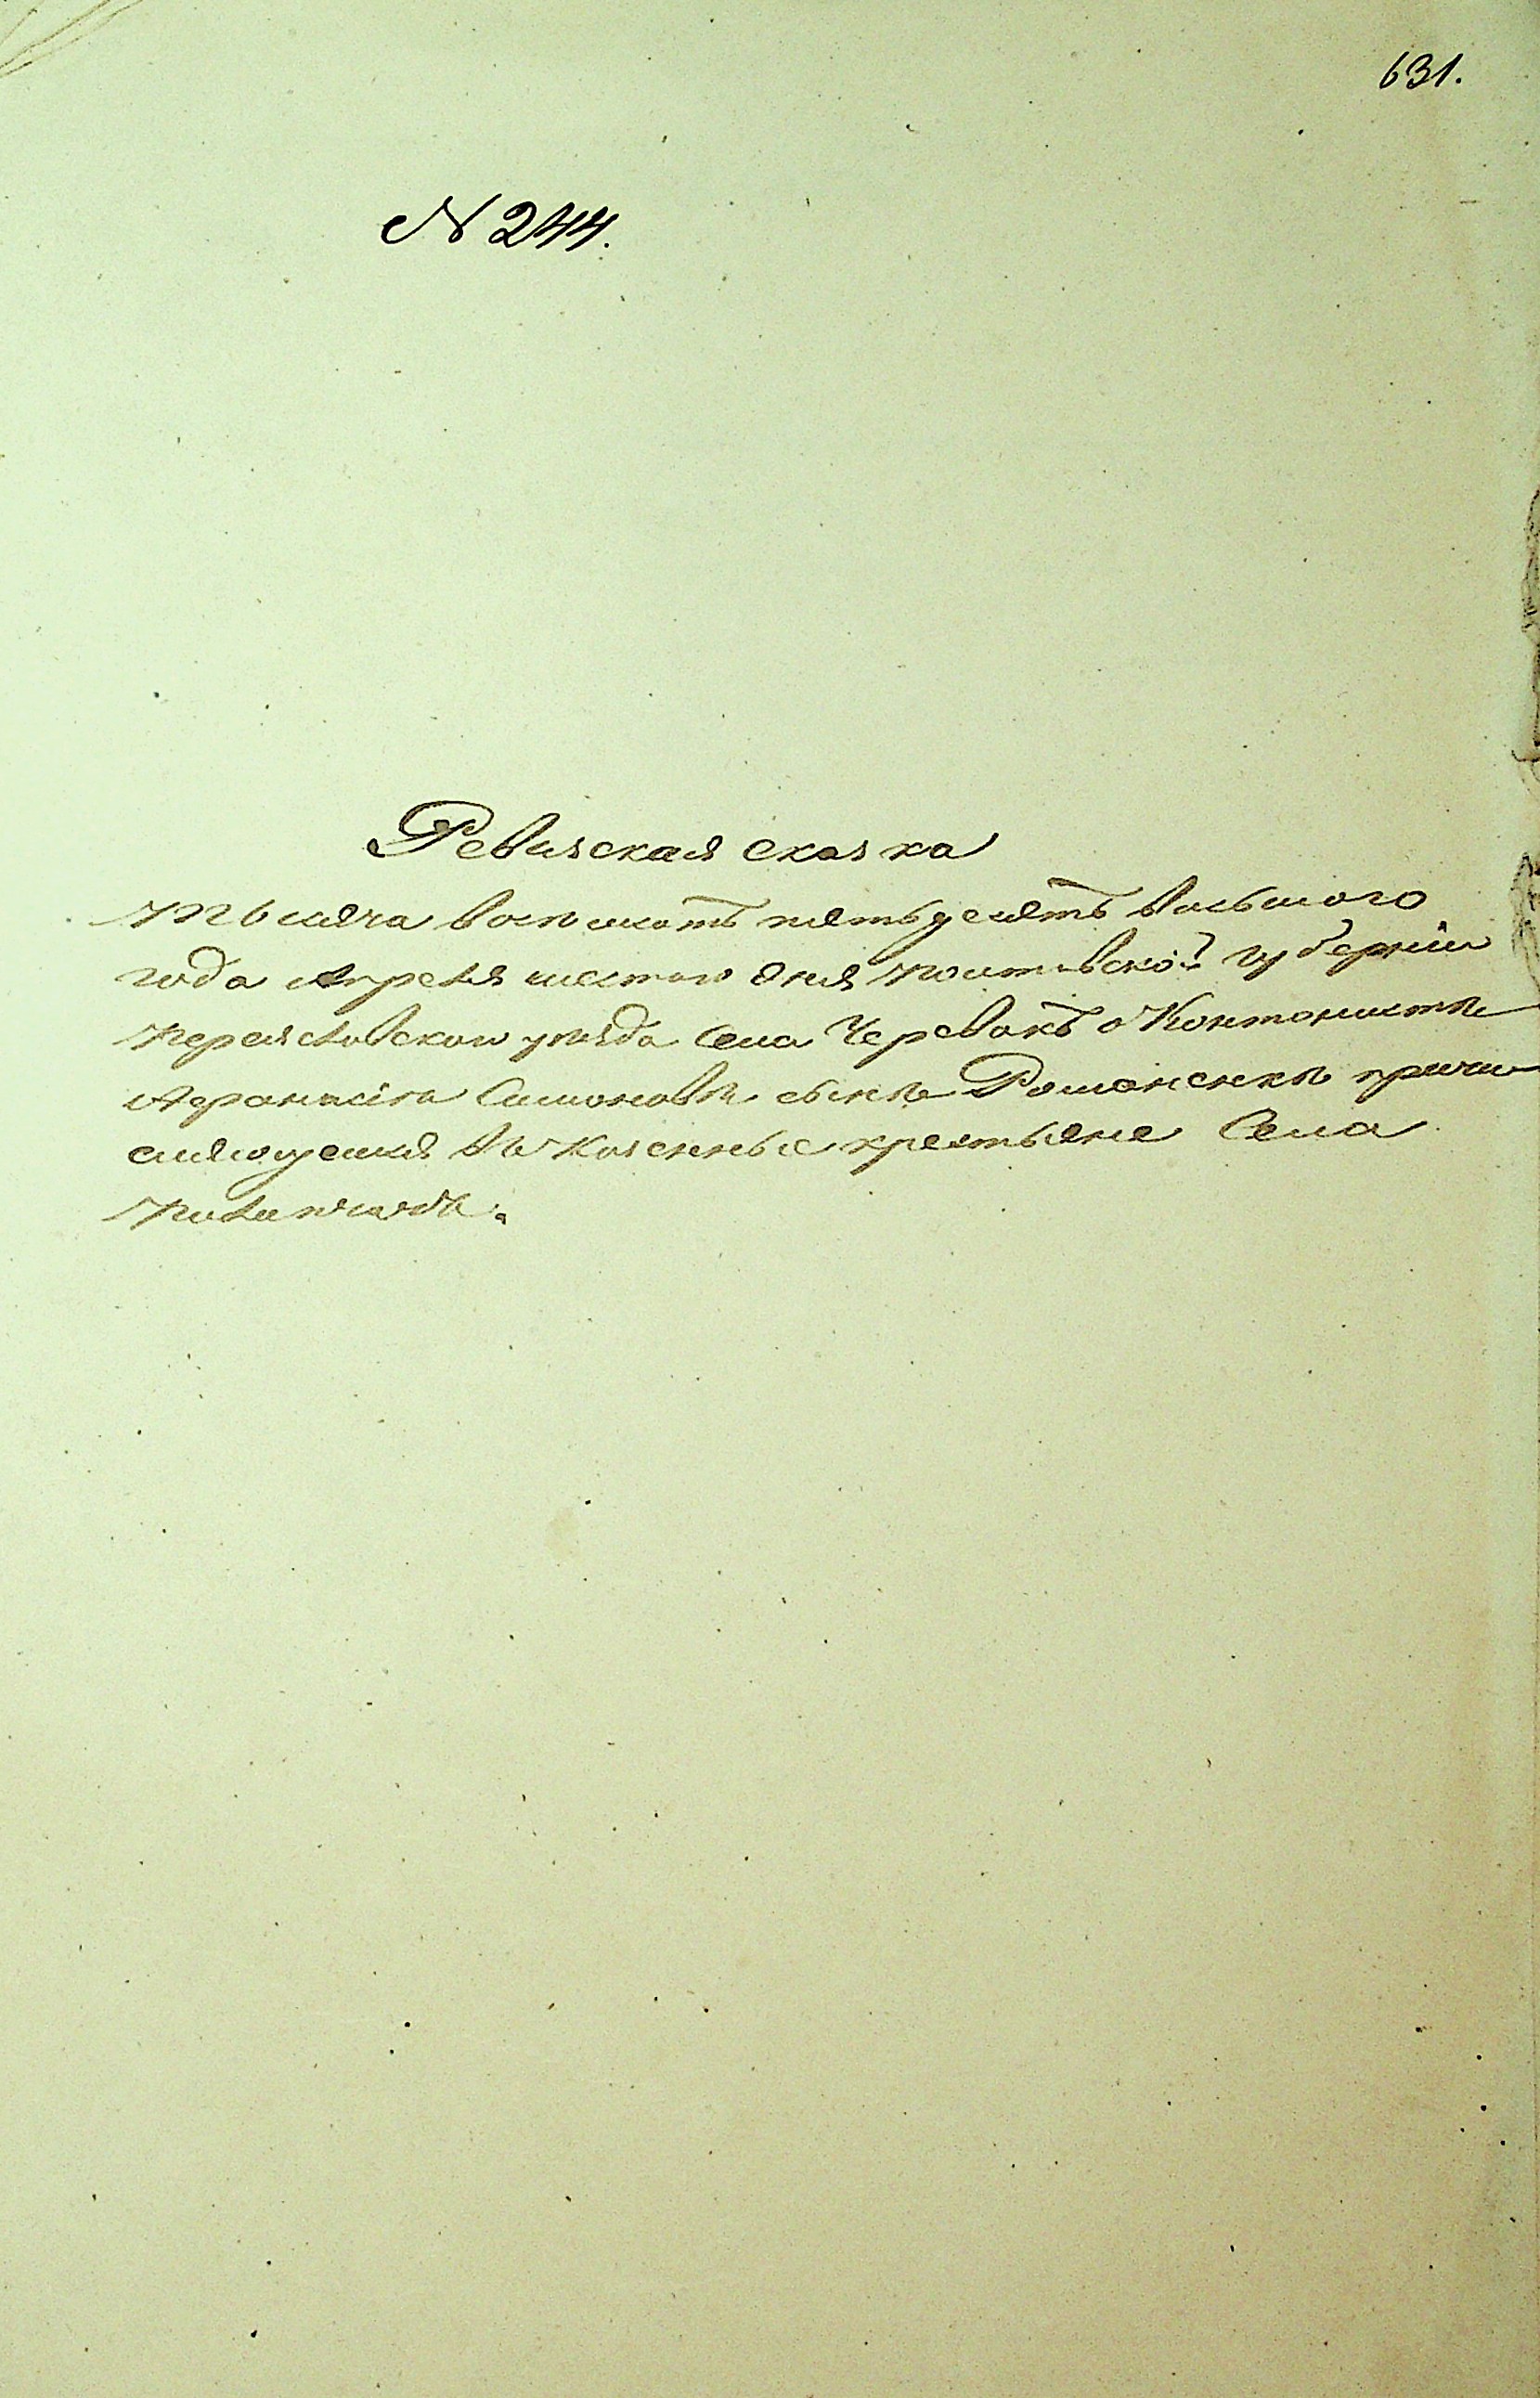 631.
N 244.
Ревизская сказка
Тысяча восемьсотъ пятьдесятъ восьмого
года Апреля шестого дня Полтавской губерніи
Переясловского уѣзда Села Черевакъ о Контонистѣ
Афанасіѣ Симоновѣ сынѣ Романенкѣ причи
сляющемся въ казенные крестьяне Села